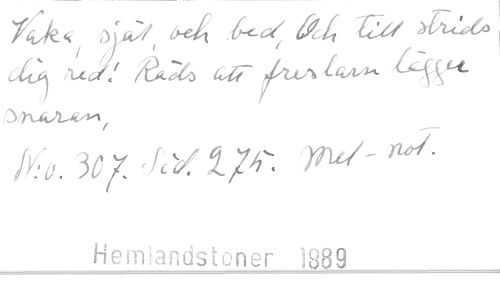 Vaka, själ, och bed, Och till strids
dig red! Räds att frestarn lägger
snaran,
N:o. 307. Sid. 275. Mel-not.
Hemlandstoner 1889